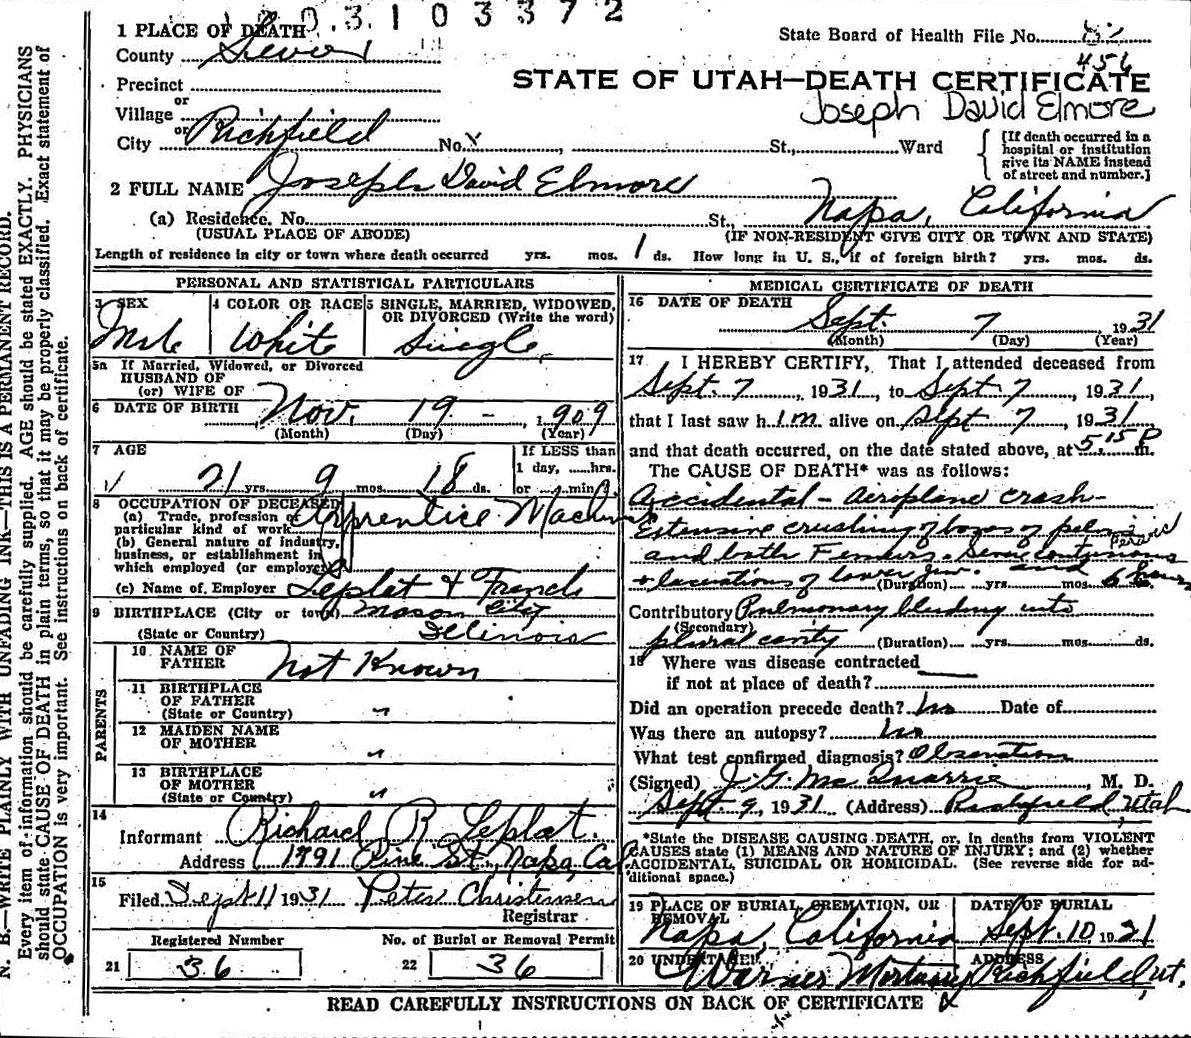 1 2 0 3 1 0 3 3 7 2
1 PLACE OF DEATH
State Board of Health File No. 82
County Sevier
456
STATE OF UTAH—DEATH CERTIFICATE
Precinct
Joseph David Elmore
or
Village
or
City Richfield No. St., Ward
{ [If death occurred in a hospital or institution give its NAME instead of street and number.]
2 FULL NAME Joseph David Elmore
(a) Residence, No. St., Napa, California
(USUAL PLACE OF ABODE) (IF NON-RESIDENT GIVE CITY OR TOWN AND STATE)
Length of residence in city or town where death occurred yrs. mos. 1 ds. How long in U. S., if of foreign birth? yrs. mos. ds.
PERSONAL AND STATISTICAL PARTICULARS
3 SEX
Male
4 COLOR OR RACE
White
5 SINGLE, MARRIED, WIDOWED, OR DIVORCED (Write the word)
Single
5a If Married, Widowed, or Divorced
HUSBAND OF
(or) WIFE OF
6 DATE OF BIRTH Nov. 19 - 1909
(Month) (Day) (Year)
7 AGE
21 yrs. 9 mos. 18 ds.
If LESS than
1 day, ......hrs.
or ......min.
8 OCCUPATION OF DECEASED
(a) Trade, profession or
particular kind of work Apprentice Machin
(b) General nature of industry,
business, or establishment in
which employed (or employer)
(c) Name of Employer Leplat & French
9 BIRTHPLACE (City or town) Mason City
(State or Country) Illinois
PARENTS
10 NAME OF
FATHER Not Known
11 BIRTHPLACE
OF FATHER
(State or Country) "
12 MAIDEN NAME
OF MOTHER "
13 BIRTHPLACE
OF MOTHER
(State or Country) "
14
Informant Richard R Leplat.
Address 1791 Pine St, Napa, Cal
15
Filed Sept 11 1931 Peter Christensen
Registrar
Registered Number
21 36
No. of Burial or Removal Permit
22 36
MEDICAL CERTIFICATE OF DEATH
16 DATE OF DEATH
Sept. 7 1931
(Month) (Day) (Year)
17 I HEREBY CERTIFY, That I attended deceased from
Sept. 7, 1931, to Sept 7, 1931,
that I last saw him alive on Sept 7, 1931
and that death occurred, on the date stated above, at 5:15 P m.
The CAUSE OF DEATH* was as follows:
Accidental - Aeroplane crash-
Extensive crushing of bones of pelvis
and both Femurs. Severe contusions
+ lacerations of lower jaw. (Duration) yrs. mos. 6
Contributory Pulmonary bleeding into
(Secondary)
plural cavity (Duration) yrs. mos. ds.
18 Where was disease contracted
if not at place of death?
Did an operation precede death? No Date of
Was there an autopsy? No
What test confirmed diagnosis? Observation
(Signed) J. G. McQuarrie, M. D.
Sept. 9, 1931 (Address) Richfield, Utah
*State the DISEASE CAUSING DEATH, or, in deaths from VIOLENT
CAUSES state (1) MEANS AND NATURE OF INJURY; and (2) whether
ACCIDENTAL, SUICIDAL OR HOMICIDAL. (See reverse side for ad-
ditional space.)
19 PLACE OF BURIAL, CREMATION, OR
REMOVAL
Napa, California
DATE OF BURIAL
Sept. 10, 1921
20 UNDERTAKER
Warner Mortuary
ADDRESS
Richfield, Ut.
READ CAREFULLY INSTRUCTIONS ON BACK OF CERTIFICATE
N. B.—WRITE PLAINLY WITH UNFADING INK—THIS IS A PERMANENT RECORD.
Every item of information should be carefully supplied. AGE should be stated EXACTLY. PHYSICIANS
should state CAUSE OF DEATH in plain terms, so that it may be properly classified. Exact statement of
OCCUPATION is very important. See instructions on back of certificate.